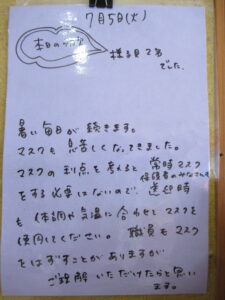 7月5日(火)
本日のクラス
様子見2名
でした。
暑い毎日が続きます。
マスクも息苦しくなってきました。
マスクの利点を考えると常時マスク
をする必要はないので、保護者のみなさんも送迎時
も体調や気温に合わせてマスクを
使用してください。職員もマスク
をはずすことがありますが
ご理解いただけたらと思い
ます。